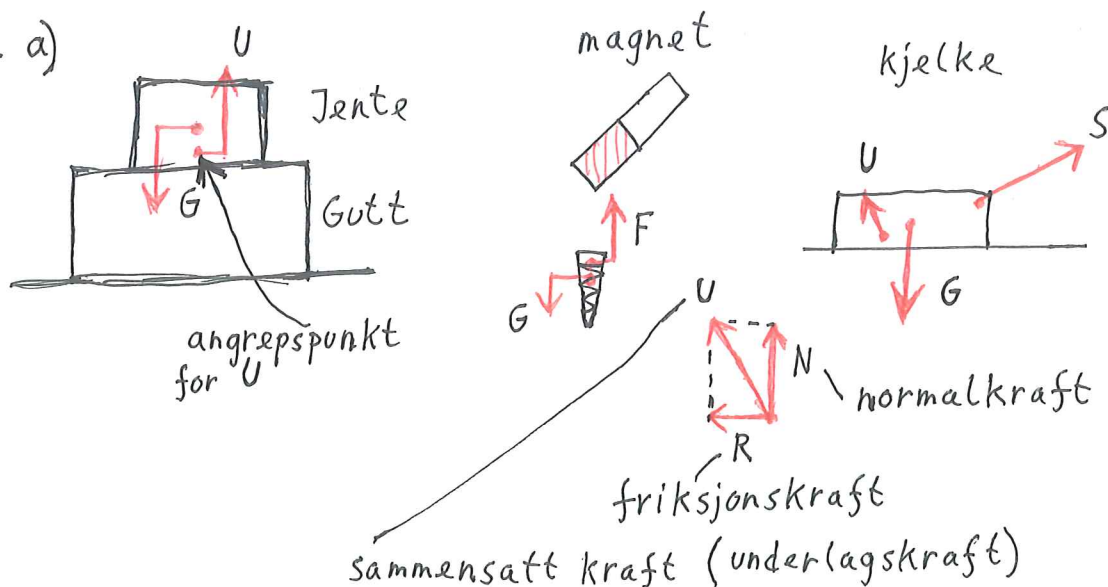 a)
U
Jente
G
Gutt
angrepspunkt
for U
magnet
F
G
kjelke
S
U
G
U
N
normalkraft
R
friksjonskraft
sammensatt kraft (underlagskraft)